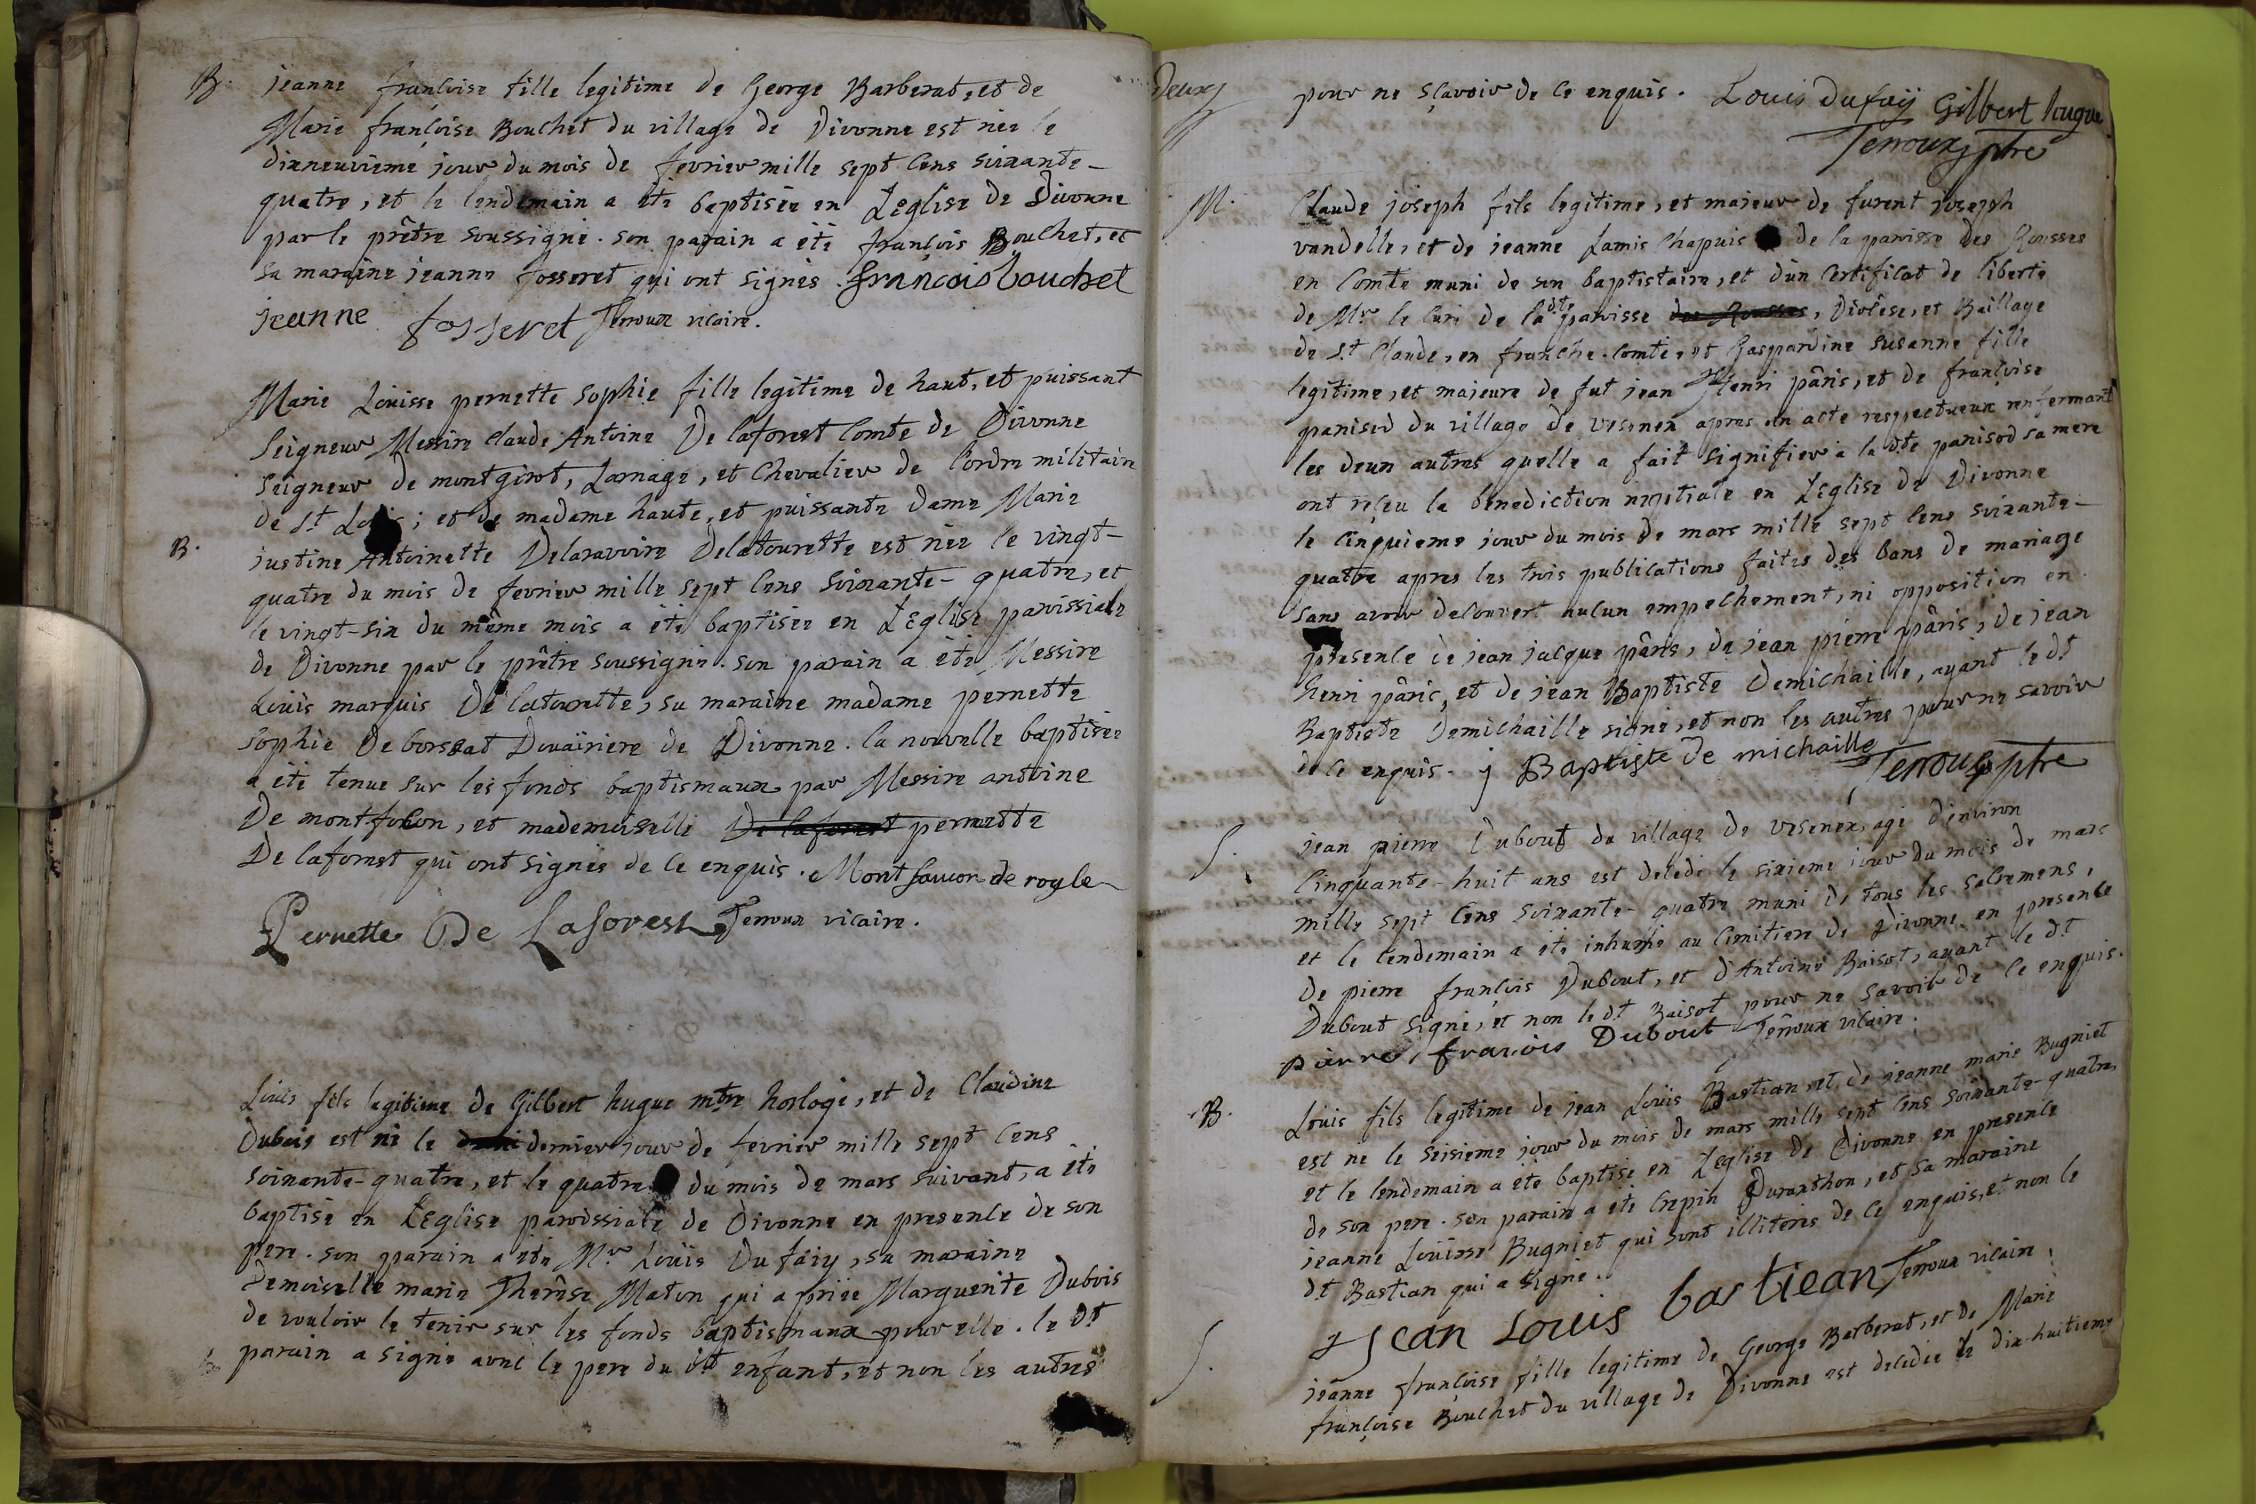 B. jeanne françoise fille legitime de George Barberat, et de
Marie françoise Bouchet du village de Divonne est née le
dixneuvieme jour du mois de fevrier mille sept cens soixante-
quatre, et le lendemain a été baptisée en L'eglise de Divonne
par le prêtre soussigné. son parain a été françois Bouchet, et
sa maraine jeanne fosseret qui ont signés. francois bouchet
jeanne fosseret Terroux vicaire.
Marie Louisse pernette sophie fille legitime de haut, et puissant
Seigneur Messire Claude Antoine De laforest Comte de Divonne
Seigneur de montgirot, Larnage, et Chevalier de l'ordre militaire
de St ; et de madame haute, et puissante dame Marie
B. justine Antoinette Delaravoire Delatourette est née le vingt-
quatre du mois de fevrier mille sept cens soixante-quatre, et
le vingt-six du même mois a été baptisée en L'Eglise parissiale
de Divonne par le prêtre soussigné. son parain a été Messire
Louis marquis De latourette, sa maraine madame pernette
sophie De borssat Douairiere de Divonne. la nouvelle baptisée
a été tenue sur les fonds baptismaux par Messire antoine
De montfolcon, et mademoiselle De laforest pernette
De laforest qui ont signés de ce enquis. Montfaucon de rogle
Pernette De Laforest Terroux vicaire.
Louis fils legitime de Gilbert hugue mtre horloge, et de Claudine
Dubois est né le dernier jour de fevrier mille sept cens
soixante-quatre, et le quatre du mois de mars suivant, a été
baptisé en L'Eglise paroissiale de Divonne en presence de son
pere. son parain a été Mr Louis Dufaiy, sa maraine
Demoiselle marie Therêse Maton qui a priée Marguerite Dubois
de vouloir le tenir sur les fonds baptismaux pour elle. le dt
parain a signé avec le pere du dt enfant, et non les autres
Deux pour ne sçavoir de ce enquis. Louis Dufaÿ Gilbert hugue
Terroux ptre
M. Claude joseph fils legitime, et majeur de furent joseph
vandelle, et de jeanne Lamis Chapuis de la parisse des Rousses
en Comté muni de son baptistaire, et d'un Certificat de liberté
de Mr le Curé de la dte parisse des Rousses, Diocêse, et Baillage
de St Claude, en franche-comté, et Gaspardine susanne fille
legitime, et majeure de fut jean Henri pâris, et de françoise
panisod du village de vesenex apres un acte respectueux renfermant
les deux autres quelle a fait signifier a la dte panisod sa mere
ont reçeu la benediction nuptiale en L'eglise de Divonne
le cinquieme jour du mois de mars mille sept cens soixante-
quatre apres les trois publications faites des bans de mariage
sans avoir decouvert aucun empechement, ni opposition en
presence de jean jacque pâris, de jean pierre pâris, de jean
henri pâris, et de jean Baptiste Demichaille, ayant le dt
Baptiste Demichaille signé, et non les autres pour ne savoir
de ce enquis. j Baptiste de michaille Terroux ptre
S. jean pierre Dubout du village de vesenex, agé d'environ
Cinquante-huit ans est decedé le sixieme jour du mois de mars
mille sept cens soixante-quatre muni de tous les sacremens,
et le lendemain a été inhumé au Cimitiere de Divonne en presence
de pierre françois Dubout, et d'Antoine Baisot, ayant le dt
Dubout signé, et non le dt Baisot pour ne savoir de ce enquis.
pierre francois Dubout Terroux vicaire.
B. Louis fils legitime de jean Louis Bastian, et de jeanne marie Bugniet
est né le seisieme jour du mois de mars mille sept cens soixante-quatre,
et le lendemain a été baptisé en L'eglise de Divonne en presence
de son pere. son parain a été Crepin Duranthon, et sa maraine
jeanne Louisse Bugniet qui sont illiterés de ce enquis, et non le
dt Bastian qui a signé.
jean Louis bastiean Terroux vicaire.
S. jeanne françoise fille legitime de George Barberat, et de Marie
françoise Bouchet du village de Divonne est decedée le dix-huitieme